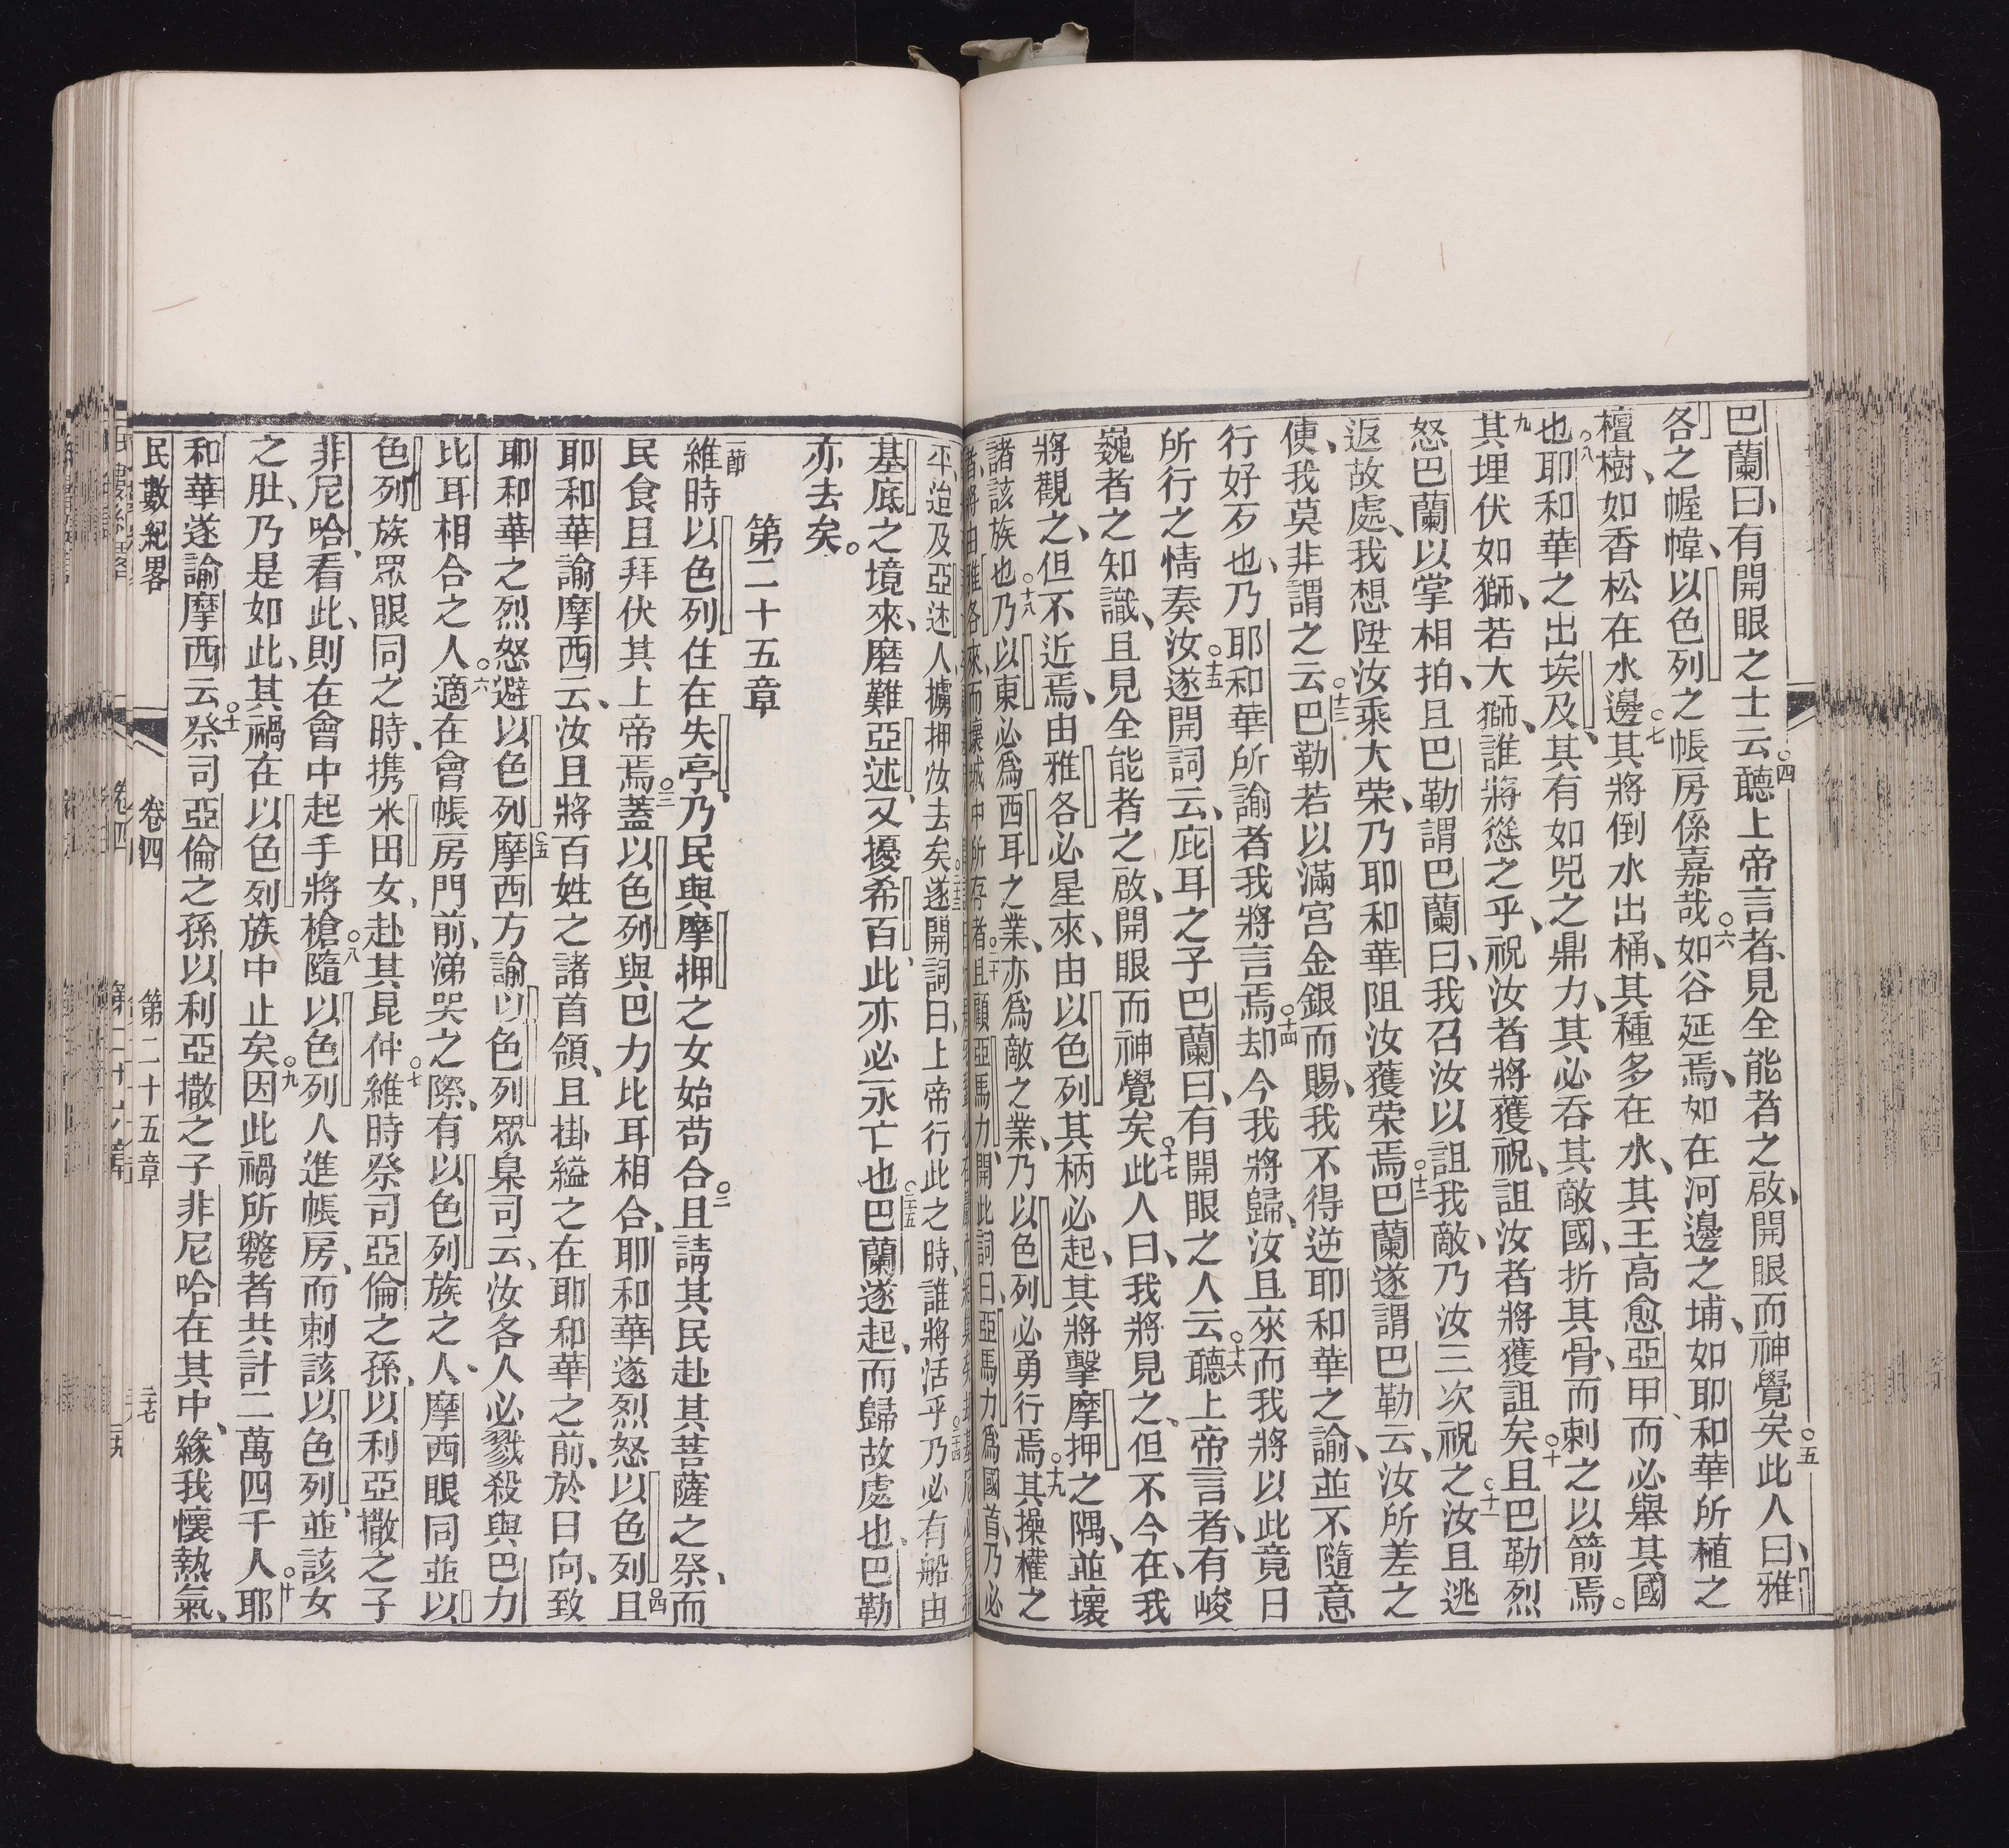 巴蘭曰、有開眼之士云○四聽上帝言者、見全能者之啟、開眼而神覺矣○五此人曰、雅
各之幄幃、以色列之帳房係嘉哉○六如谷延焉、如在河邊之埔、如耶和華所植之
檀樹、如香松在水邊○七其將倒水出桶、其種多在水、其王高愈亞甲、而必舉其國
也○八耶和華之出埃及、其有如兕之鼎力、其必吞其敵國、折其骨、而刺之以箭焉○
九其埋伏如獅、若大獅、誰將慫之乎、祝汝者將獲祝、詛汝者將獲詛矣○十且巴勒烈
怒巴蘭以掌相拍、且巴勒謂巴蘭曰、我召汝以詛我敵、乃汝三次祝之○十一汝且逃
返故處、我想陞汝乘大荣、乃耶和華阻汝獲荣焉○十二巴蘭遂謂巴勒云、汝所差之
使、我莫非謂之云○十三巴勒若以滿宮金銀而賜、我不得逆耶和華之諭、並不隨意
行好歹也、乃耶和華所諭者我將言焉○十四却今我將歸、汝且來而我將以此竟日
所行之情奏汝○十五遂開詞云、庇耳之子巴蘭曰、有開眼之人云○十六聽上帝言者、有峻
巍者之知識、且見全能者之啟、開眼而神覺矣○十七此人曰、我將見之、但不今在、我
將觀之、但不近焉、由雅各必星來、由以色列其柄必起、其將擊摩押之隅、並壞
諸該族也○十八乃以東必為西耳之業、亦為敵之業、乃以色列必勇行焉○十九其操權之
者、將由雅各來、而壞城中所存者○二十且顧亞馬力、開此詞曰、亞馬力為國首、乃必
平、迨及亞述人擄押汝去矣○二十三遂開詞曰、上帝行此之時、誰將活乎○二十四乃必有船由
基底之境來、磨難亞述、又擾希百、此亦必永亡也○二十五巴蘭遂起、而歸故處也、巴勒
亦去矣。
第二十五章
一節維時以色列住在失亭、乃民與摩押之女始苟合○二且請其民赴其菩薩之祭、而
民食且拜伏其上帝焉○三蓋以色列與巴力比耳相合、耶和華遂烈怒以色列○四且
耶和華諭摩西云、汝且將百姓之諸首領、且掛縊之在耶和華之前、於日向、致
耶和華之烈怒避以色列○五摩西方諭以色列眾臬司云、汝各人必戮殺與巴力
比耳相合之人○六適在會帳房門前、涕哭之際、有以色列族之人、摩西眼同並以
色列族眾眼同之時、携米田女、赴其昆仲○七維時祭司亞倫之孫、以利亞撒之子
非尼哈看此、則在會中起手將槍○八隨以色列人進帳房、而刺該以色列、並該女
之肚、乃是如此、其禍在以色列族中止矣○九因此禍所斃者共計二萬四千人○十耶
和華遂諭摩西云○十一祭司亞倫之孫以利亞撒之子非尼哈在其中、緣我懷熱氣、
民數紀畧 卷四 第二十五章 三十七